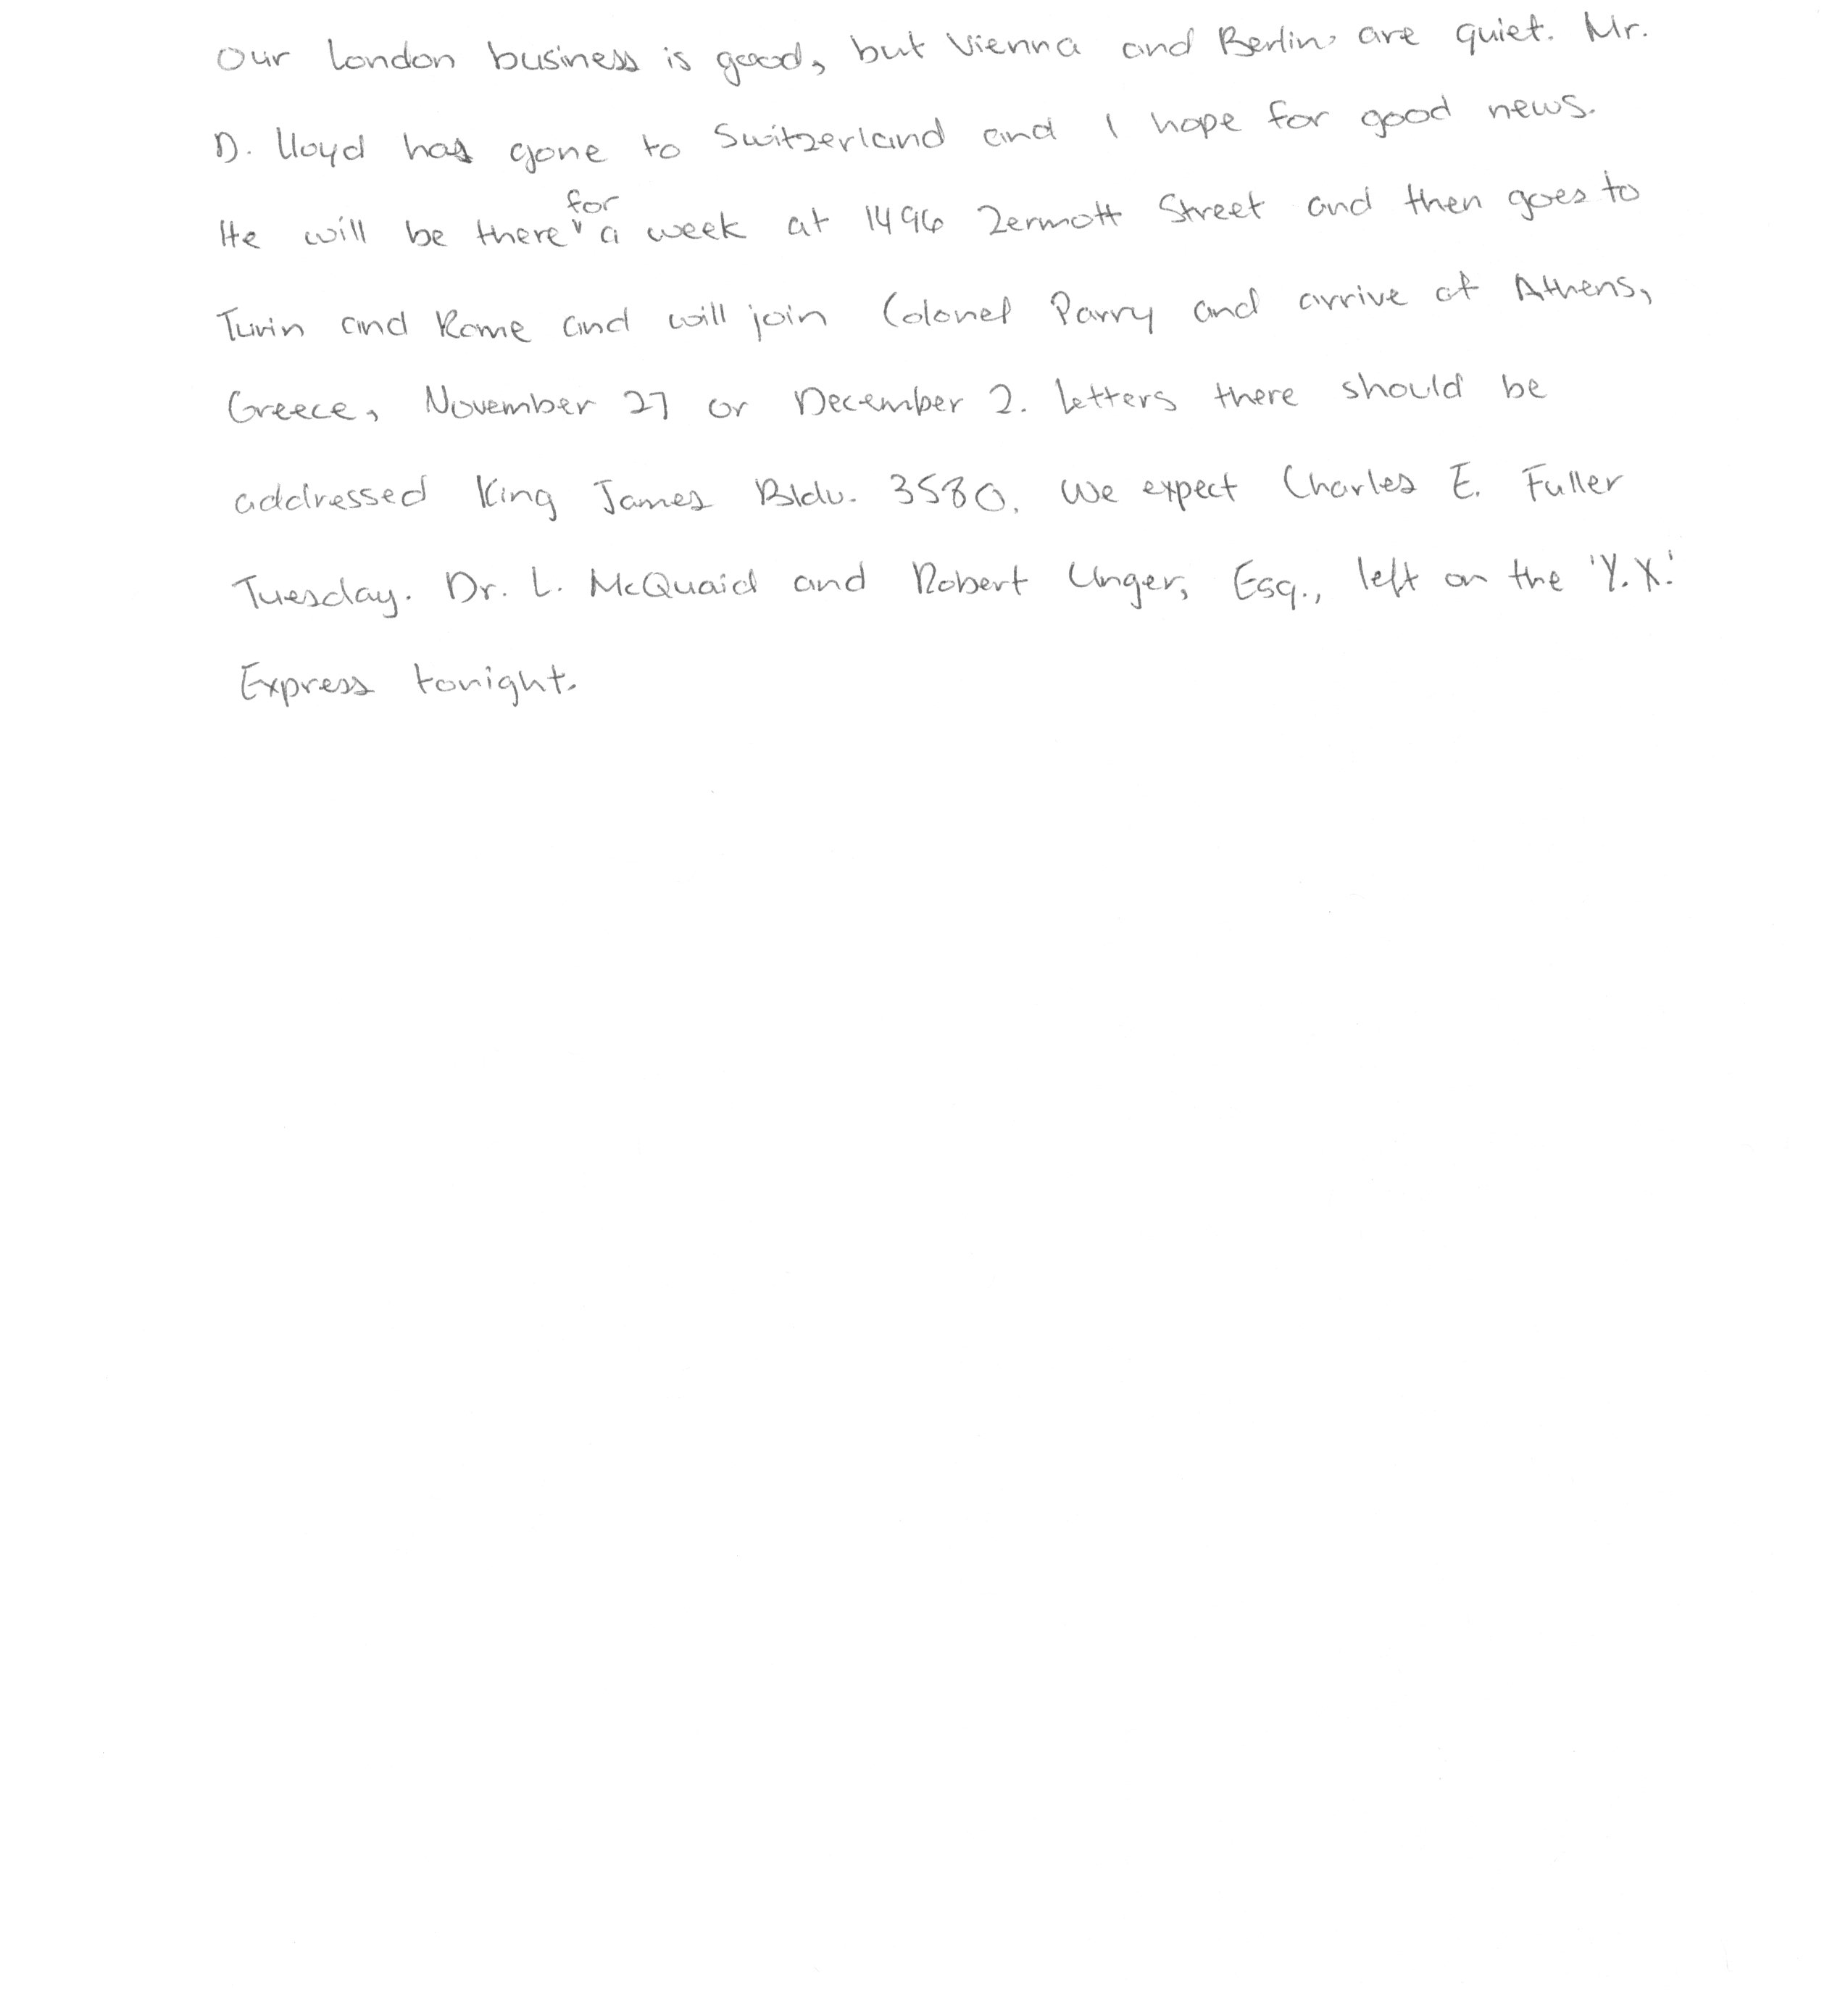 Our London business is good, but Vienna and Berlin are quiet. Mr.
D. Lloyd has gone to Switzerland and I hope for good news.
He will be there for a week at 1496 Zermott Street and then goes to
Turin and Rome and will join Colonel Parry and arrive at Athens,
Greece, November 27 or December 2. Letters there should be
addressed King James Bldv. 3580. We expect Charles E. Fuller
Tuesday. Dr. L. McQuaid and Robert Unger, Esq., left on the 'Y.X.'
Express tonight.